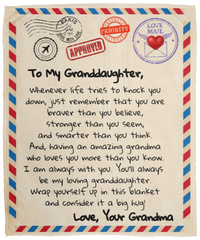 PARIS
APPROVED
PRIORITY
LOVE
MAIL
To My Granddaughter,
Whenever life tries to knock you
down, just remember that you are
braver than you believe,
stronger than you seem,
and smarter than you think.
And, having an amazing grandma
who loves you more than you know.
I am always with you. You'll always
be my loving granddaughter.
Wrap yourself up in this blanket
and consider it a big hug!
Love, Your Grandma